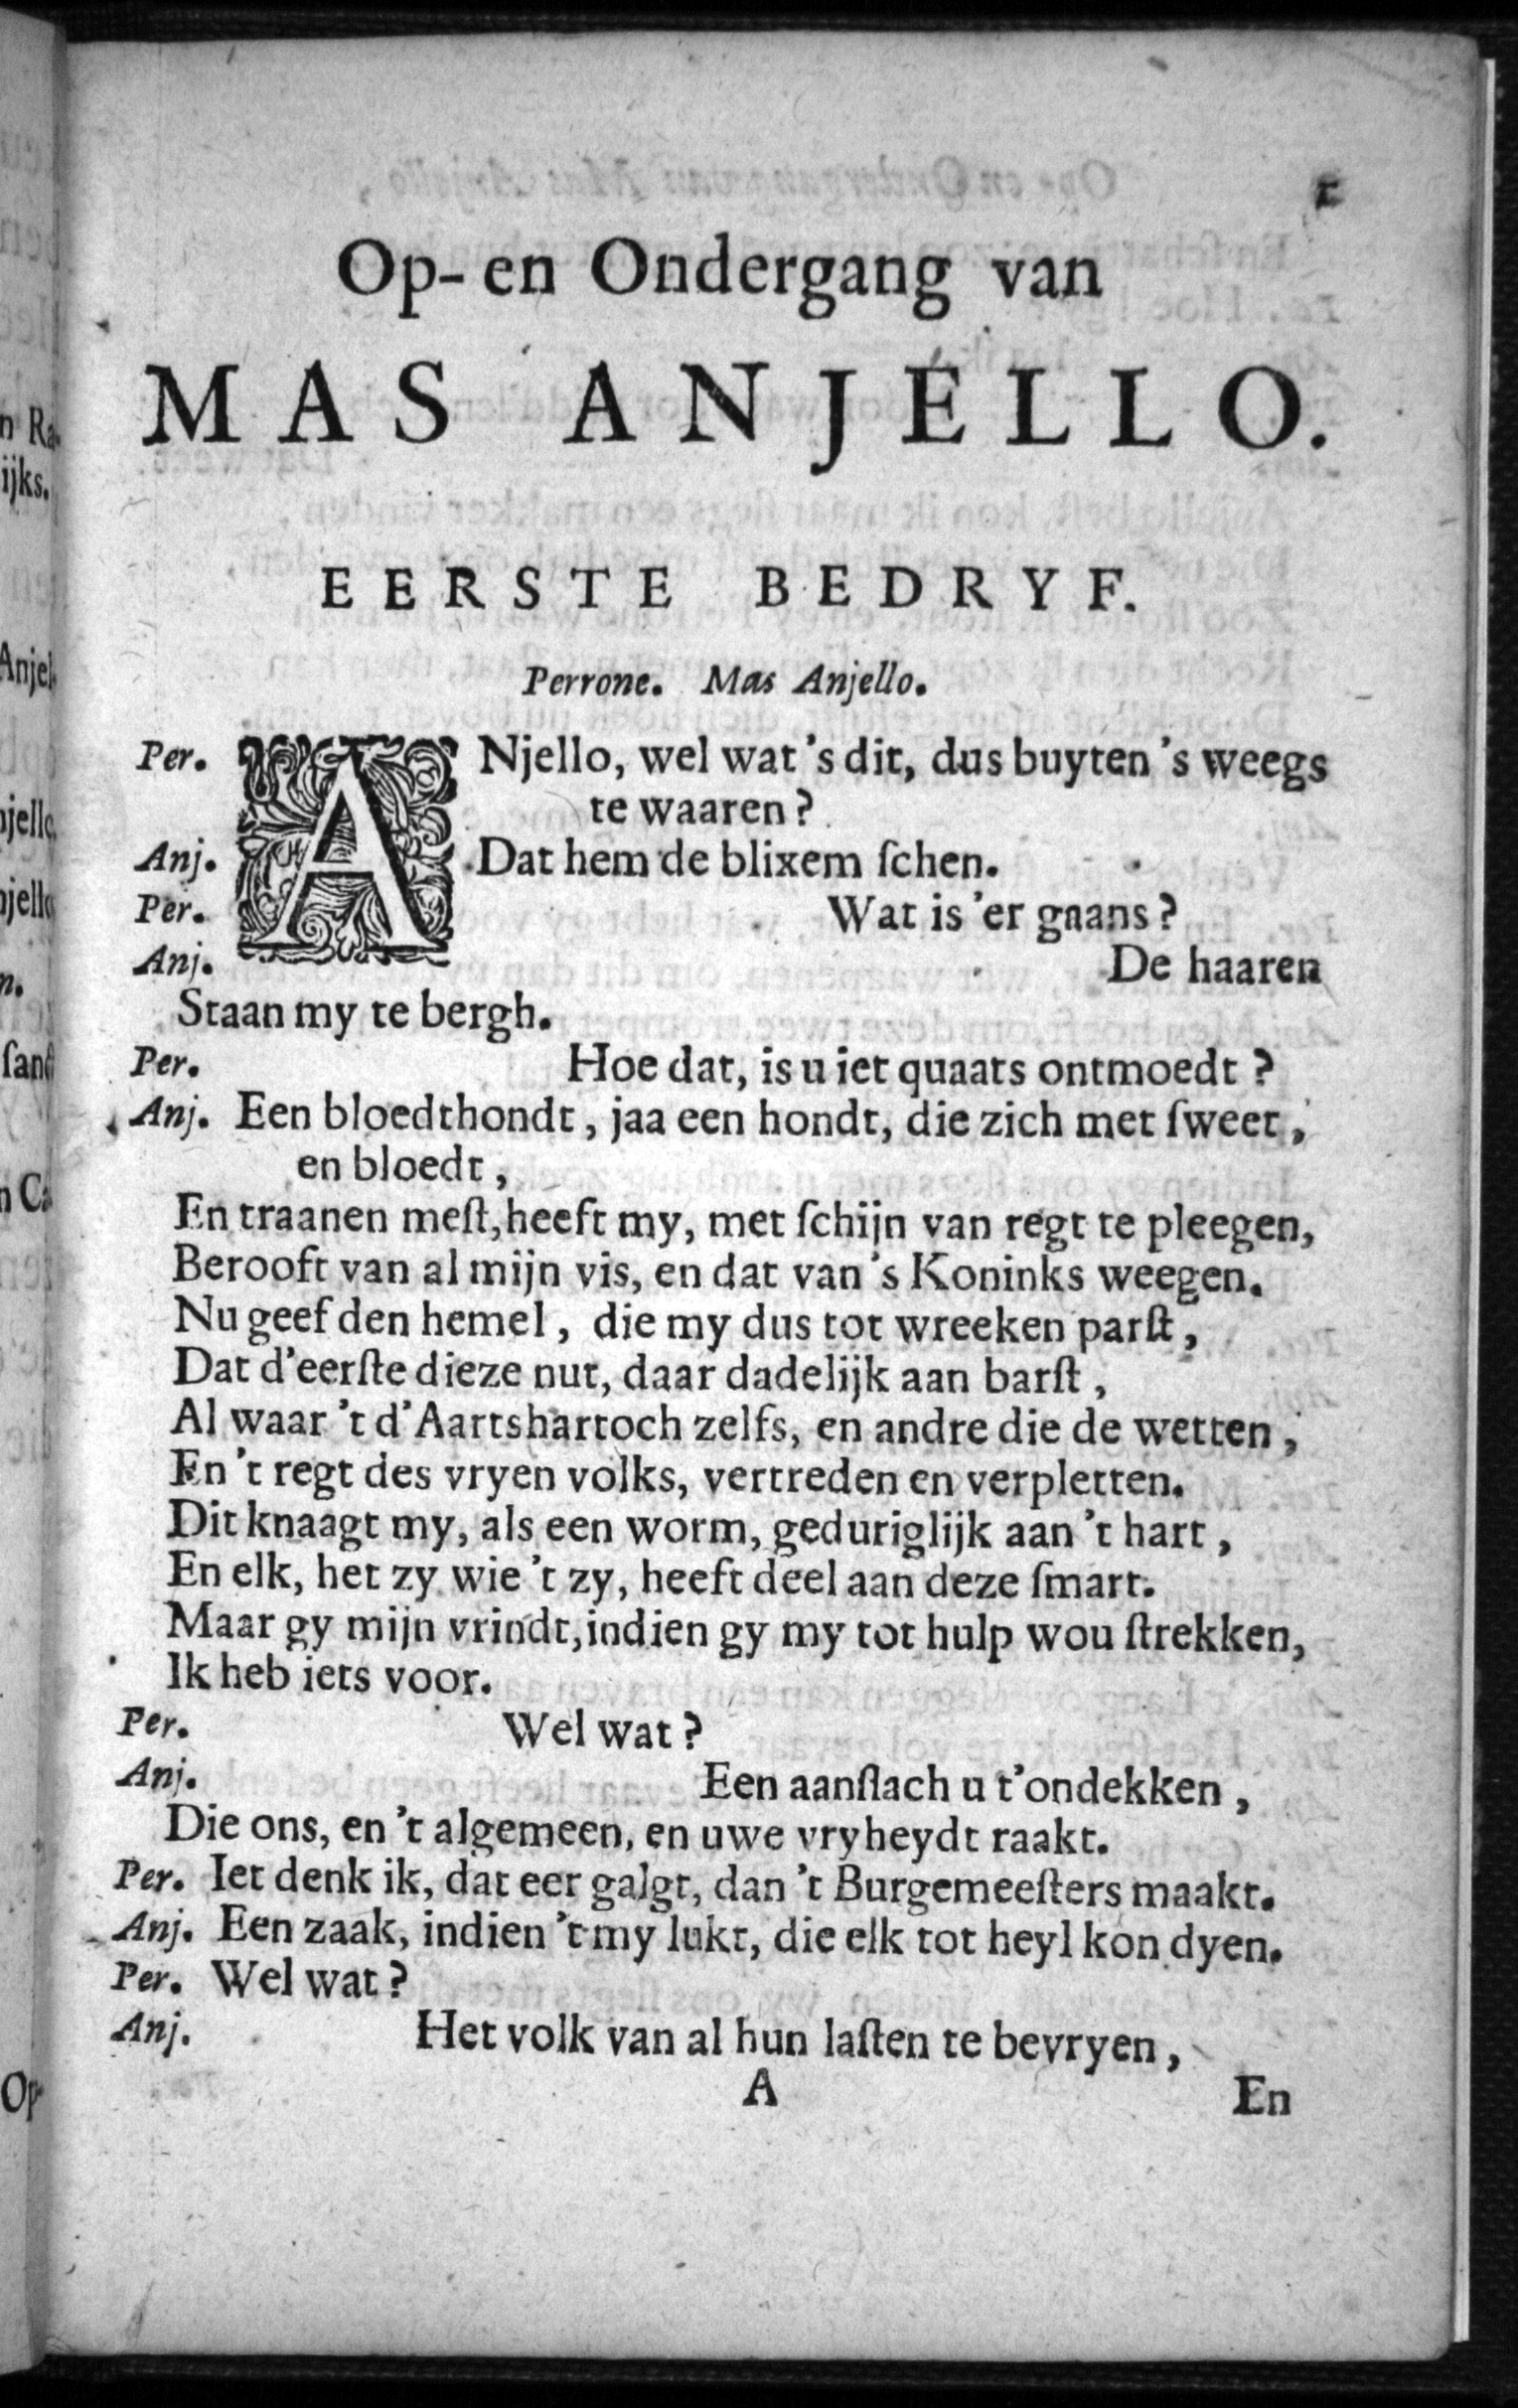 1
Op- en Ondergang van
MAS ANJELLO.
EERSTE BEDRYF.
Perrone. Mas Anjello.
Per. ANjello, wel wat 's dit, dus buyten 's weegs
te waaren?
Anj. Dat hem de blixem ſchen.
Per. Wat is 'er gaans?
Anj. De haaren
Staan my te bergh.
Per. Hoe dat, is u iet quaats ontmoedt?
Anj. Een bloedthondt, jaa een hondt, die zich met ſweet,
en bloedt,
En traanen meſt, heeft my, met ſchijn van regt te pleegen,
Berooft van al mijn vis, en dat van 's Koninks weegen.
Nu geef den hemel, die my dus tot wreeken parſt,
Dat d'eerſte dieze nut, daar dadelijk aan barſt,
Al waar 't d'Aartshartoch zelfs, en andre die de wetten,
En 't regt des vryen volks, vertreden en verpletten.
Dit knaagt my, als een worm, geduriglijk aan 't hart,
En elk, het zy wie 't zy, heeft deel aan deze ſmart.
Maar gy mijn vrindt, indien gy my tot hulp wou ſtrekken,
Ik heb iets voor.
Per. Wel wat?
Anj. Een aanſlach u t'ondekken,
Die ons, en 't algemeen, en uwe vryheydt raakt.
Per. Iet denk ik, dat eer galgt, dan 't Burgemeeſters maakt.
Anj. Een zaak, indien 't my lukt, die elk tot heyl kon dyen.
Per. Wel wat?
Anj. Het volk van al hun laſten te bevryen,
A En